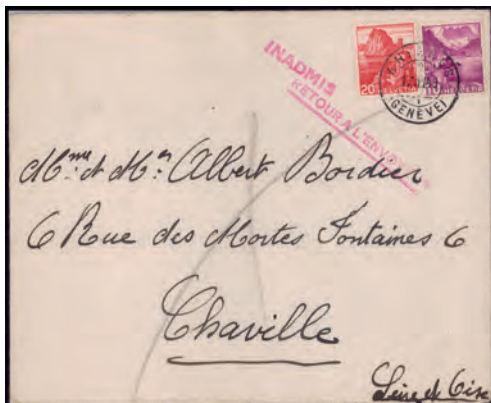 INADMIS
RETOUR A L'ENVOYEUR
20 HELVETIA
10 HELVETIA
(GENÈVE)
Mme et Mr Albert Bordier
6 Rue des Mortes Fontaines 6
Chaville
Seine et Oise